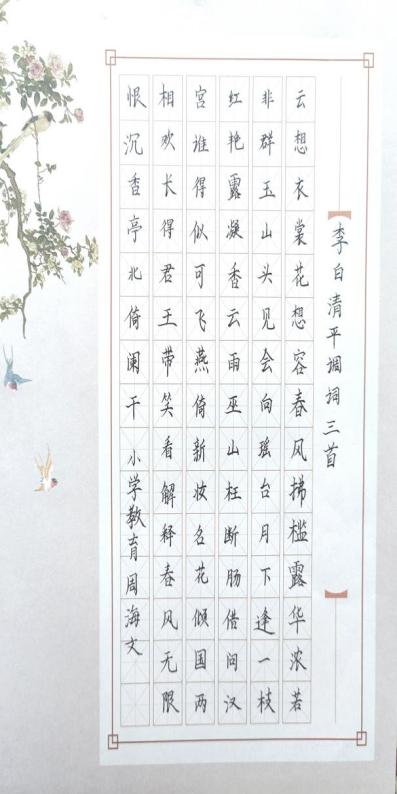 李白清平调词三首
云想衣裳花想容春风拂槛露华浓若
非群玉山头见会向瑶台月下逢一枝
红艳露凝香云雨巫山枉断肠借问汉
宫谁得似可飞燕倚新妆名花倾国两
相欢长得君王带笑看解释春风无限
恨沉香亭北倚阑干 小学教育周海文